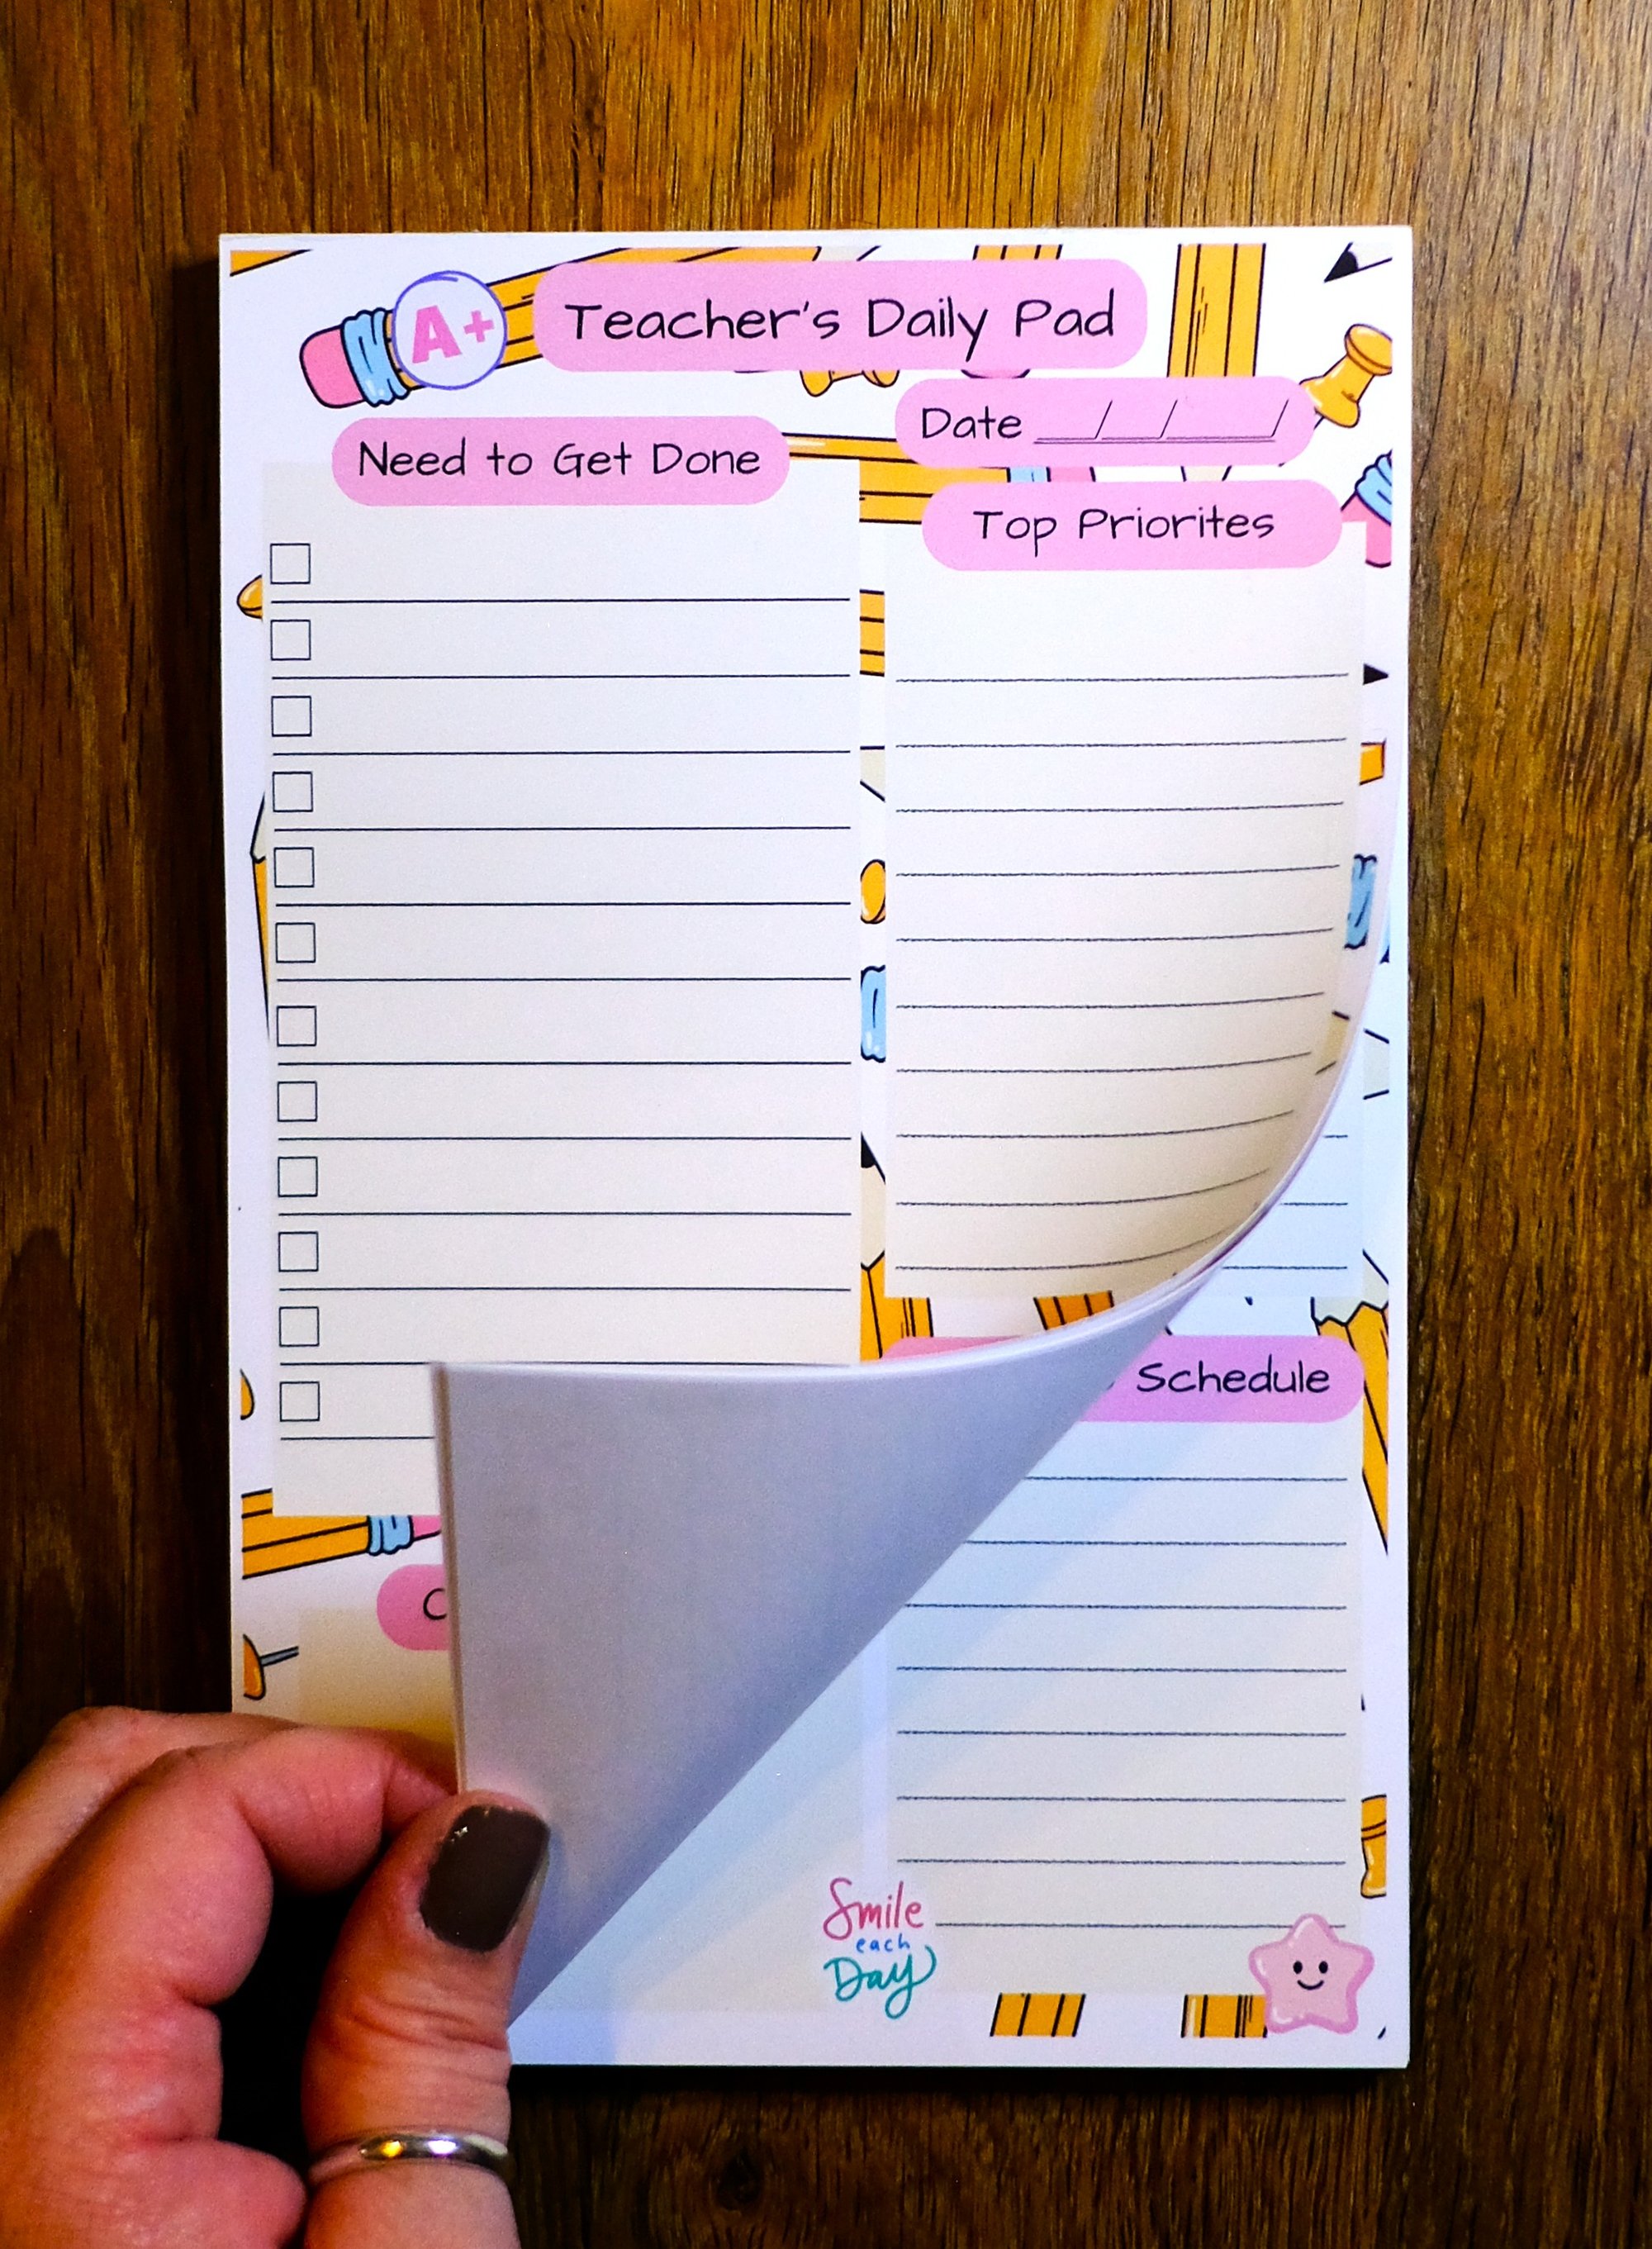 A+
Teacher's Daily Pad
Date __/__/___/
Need to Get Done
Top Priorites
Schedule
Smile
each
Day